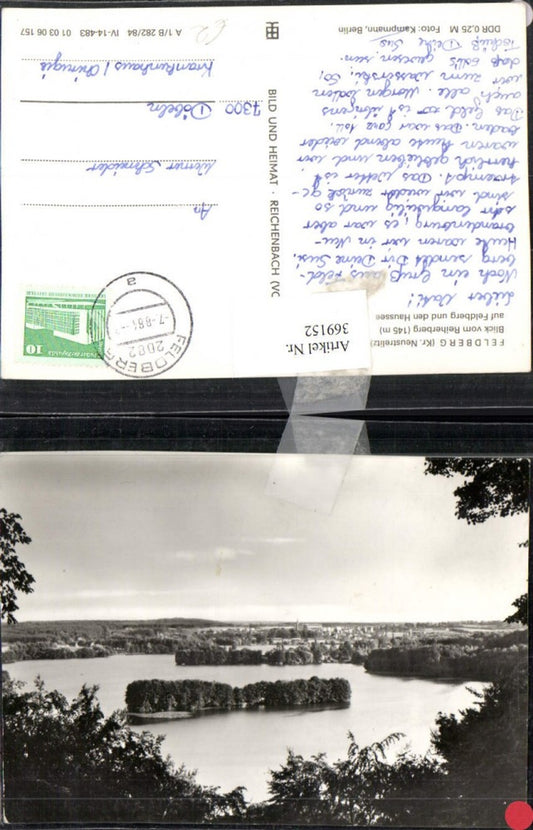 FELDBERG (Kr. Neustrelitz)
Blick vom Reiherberg (145 m)
auf Feldberg und den Haussee
Lieber Vati!
Noch ein Gruß aus Feld-
berg sendet Dir Deine Susi.
Heute waren wir in Neu-
brandenburg, es war aber
sehr langweilig und so
sind wir wieder zurück ge-
. Das Wetter ist
herrlich geblieben und wir
waren heute abend wieder
baden. Das war ganz toll.
Das Geld ist übrigens
auch alle. Morgen wollen
wir zum Wasserski. So,
daß soll's gewesen sein.
Tschüß Deine Susi
DDR 0,25 M Foto: Kampmann, Berlin
BILD UND HEIMAT · REICHENBACH (VO
A 1/B 282/84 IV-14-483 01 03 06 157
€2
An
Werner Schneider
7300 Döbeln
Krankenhaus / Chirurgie
10
FELDBERG
2082
-7.-8.84-
a
Artikel Nr.
369152